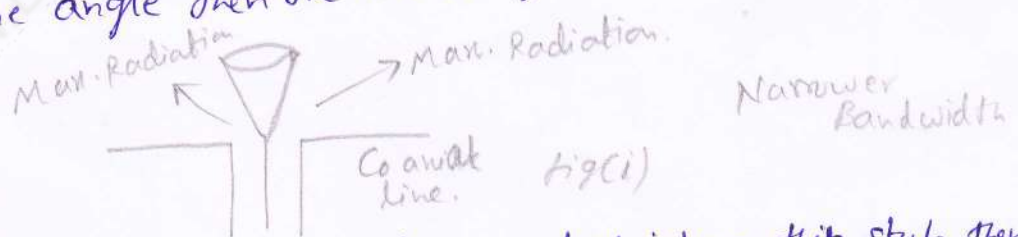 e angle then
Max. Radiation
Max. Radiation.
Narrower
Bandwidth
Coaxial
line.
fig(i)
this stub then